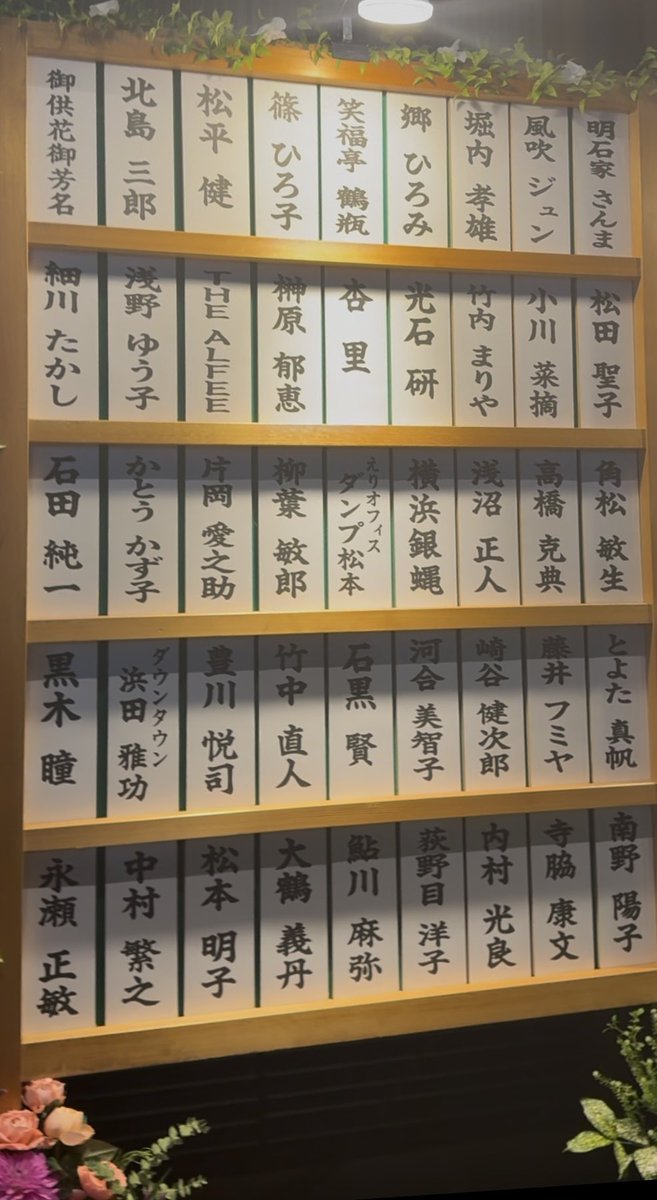 御供花御芳名
北島 三郎
松平 健
篠 ひろ子
笑福亭 鶴瓶
郷 ひろみ
堀内 孝雄
風吹 ジュン
明石家 さんま
細川 たかし
浅野 ゆう子
THE ALFEE
榊原 郁恵
杏里
光石 研
竹内 まりや
小川 菜摘
松田 聖子
石田 純一
かとう かず子
片岡 愛之助
柳葉 敏郎
えりオフィス
ダンプ松本
横浜銀蝿
浅沼 正人
高橋 克典
角松 敏生
黒木 瞳
ダウンタウン
浜田 雅功
豊川 悦司
竹中 直人
石黒 賢
河合 美智子
崎谷 健次郎
藤井 フミヤ
とよた 真帆
永瀬 正敏
中村 繁之
松本 明子
大鶴 義丹
鮎川 麻弥
荻野目 洋子
内村 光良
寺脇 康文
南野 陽子